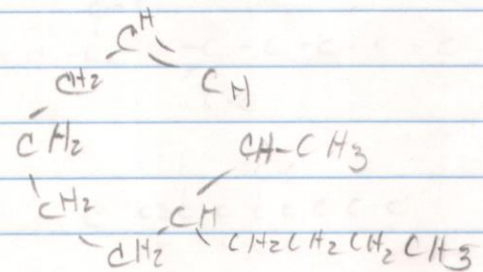 CH
CH2 CH
CH2 CH-CH3
CH2 CH
CH2 CH2CH2CH2CH3